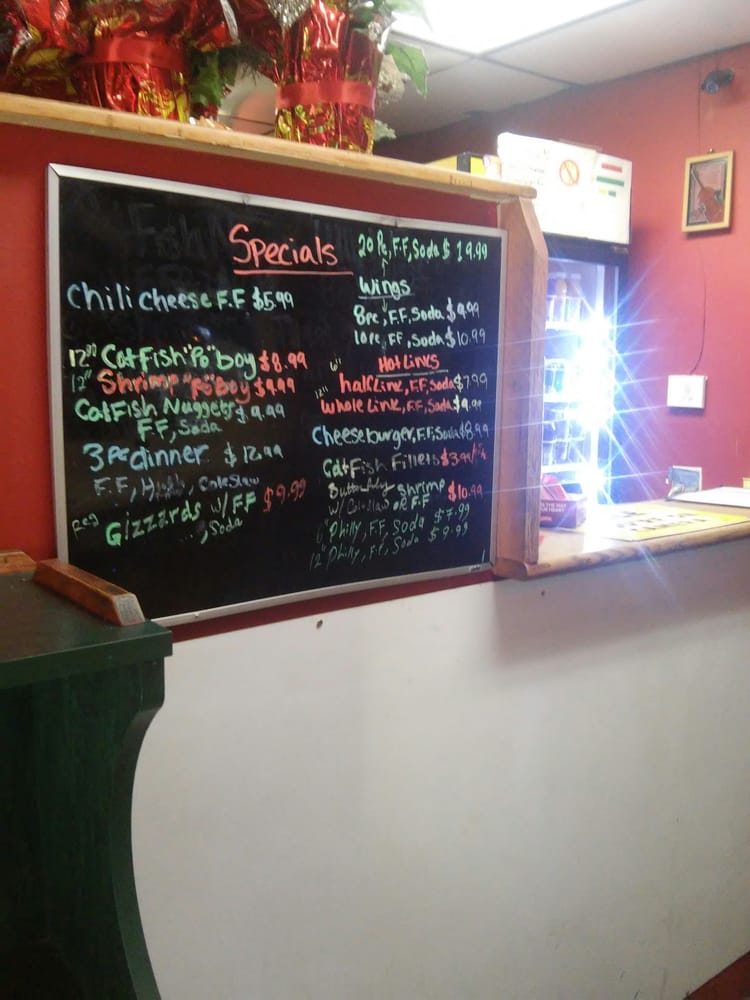 Specials
Chili Cheese F.F $5.99
12" CatFish "Po" boy $8.99
12" Shrimp "Po" Boy $9.99
CatFish Nuggets $9.99
F.F, Soda
3 Pc dinner $12.99
F.F, Coleslaw
Reg Gizzards w/ FF $9.99
, Soda
20 Pc, F.F, Soda $19.99
Wings
8pc, F.F, Soda $9.99
10pc, FF, Soda $10.99
Hot Links
6" half Link, F.F, Soda $7.99
12" whole Link, F.F, Soda $9.99
Cheeseburger, F.F, Soda $8.99
CatFish Fillets $3.99
Butterfly shrimp $10.99
w/ Coleslaw or F.F
6" Philly, F.F, Soda $7.99
12" Philly, F.F, Soda $9.99